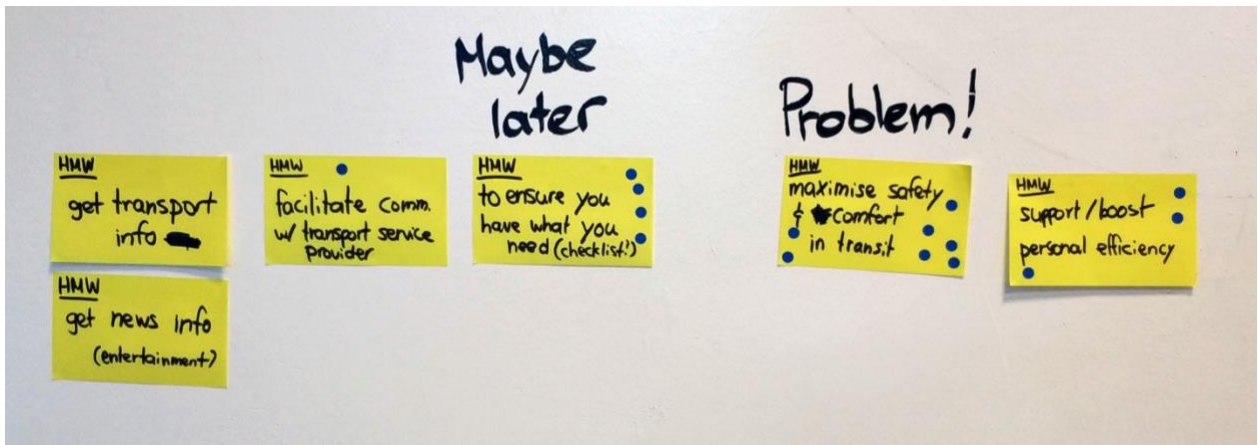 Maybe
later
Problem!
HMW
get transport
info
HMW
get news info
(entertainment)
HMW
facilitate comm.
w/ transport service
provider
HMW
to ensure you
have what you
need (checklist?)
HMW
maximise safety
& comfort
in transit
HMW
support/boost
personal efficiency